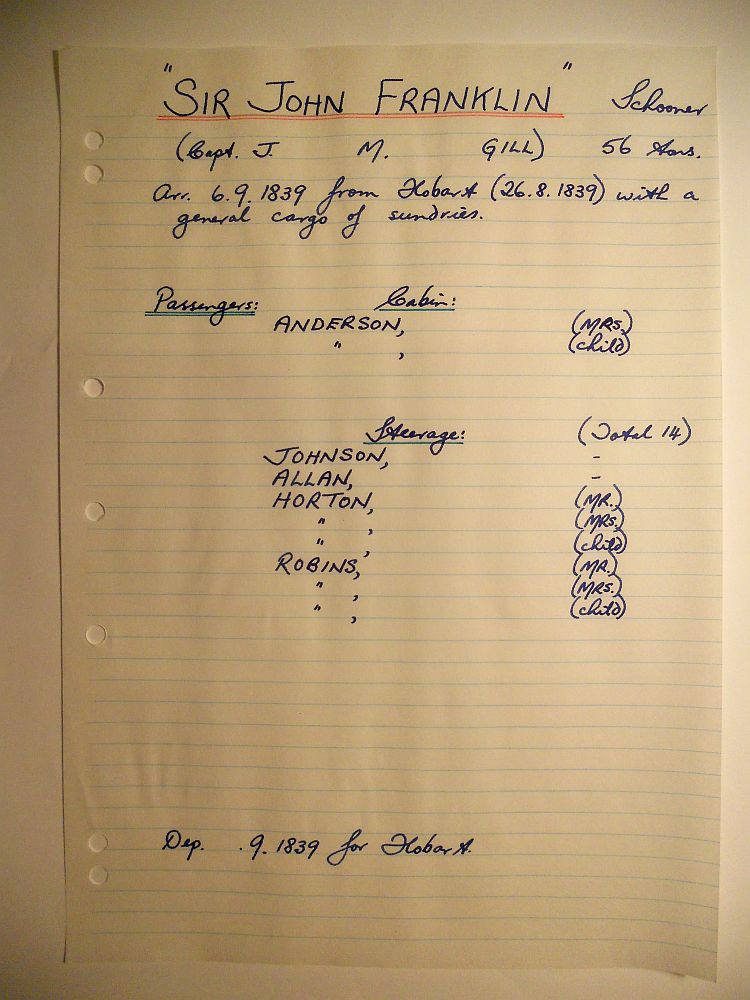 "SIR JOHN FRANKLIN" Schooner
(Capt. J. M. GILL) 56 tons.
Arr. 6.9.1839 from Hobart (26.8.1839) with a
general cargo of sundries.
Passengers: Cabin:
ANDERSON, (MRS.)
" , (child)
Steerage: (Total 14)
JOHNSON, -
ALLAN, -
HORTON, (MR.)
" , (MRS.)
" , (child)
ROBINS, (MR.)
" , (MRS.)
" , (child)
Dep. .9.1839 for Hobart.